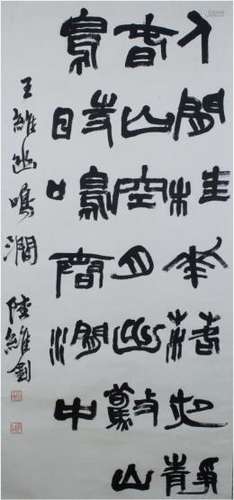 人閒桂華落夜靜
春山空月出驚山
鳥時鳴春澗中
王維鳥鳴澗 陸維釗